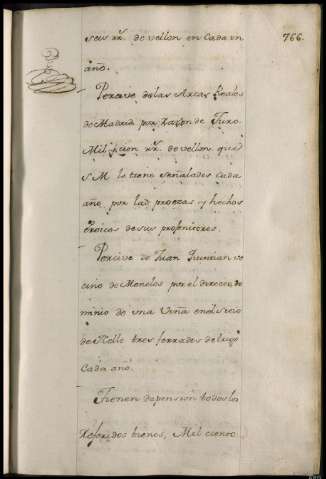 766.
seis rr.ˢ de vellon en Cada un
año.
Percive de las Arcas Reales
de Madrid por Razon de Juro
Mil y cien rr.ˢ de vellon que
S M. le tiene señalados Cada
año por las proezas y hechos
eroicos de sus projenitores.
Percive de Juan Guntian ve
cino de Monelos por el directo do
minio de una Viña en el sitio
de tres ferrados de trigo
Cada año.
Tienen de pension todos los
Referidos bienes, Mil ciento